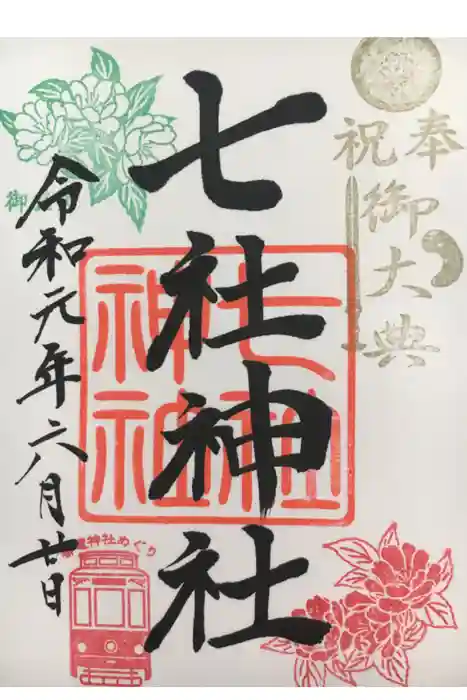 奉祝
御大典
七社神社
七社神社
令和元年六月廿日
御
神社めぐり